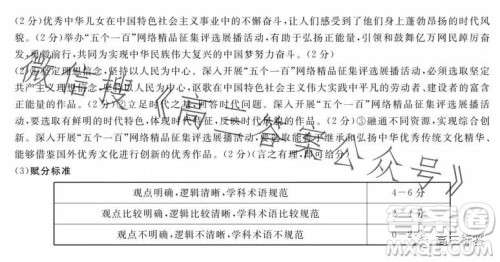 (2分)优秀中华儿女在中国特色社会主义事业中的不懈奋斗,让人们感受到了他们身上蓬勃昂扬的时代风
貌。(2分)举办“五个一百”网络精品征集评选展播活动,有助于弘扬正能量,引领和鼓舞亿万网民踔厉奋
发、勇毅前行,共同为实现中华民族伟大复兴的中国梦努力奋斗。(2分)
(2)坚定理想信念,坚持以人民为中心。深入开展“五个一百”网络精品征集评选展播活动,必须选取坚定
共产主义理想信念、在中国特色社会主义伟大实践中平凡的劳动者、建设者的富含
正能量的作品。(2分)②立足时代之基,回答时代问题。深入开展“五个一百”网络精品征集评选展播活
动,要选取有鲜明的时代特色,体现时代 ,反映时代 的作品。(2分)③融通不同资源,实现综合创
新。深入开展“五个一百”网络精品征集评选展播活动,要选取能 于继承和弘扬中华优秀传统文化精华、
能够借鉴国外优秀文化进行创新的优秀作品。(2分)(言之有理,即可给分)
(3)赋分标准
观点明确,逻辑清晰,学科术语规范 4-6分
观点比较明确,逻辑比较清晰,学科术语比较规范
观点不明确,逻辑不清晰,学科术语不规范 0-
微信搜《高三答案公众号》
答案圈